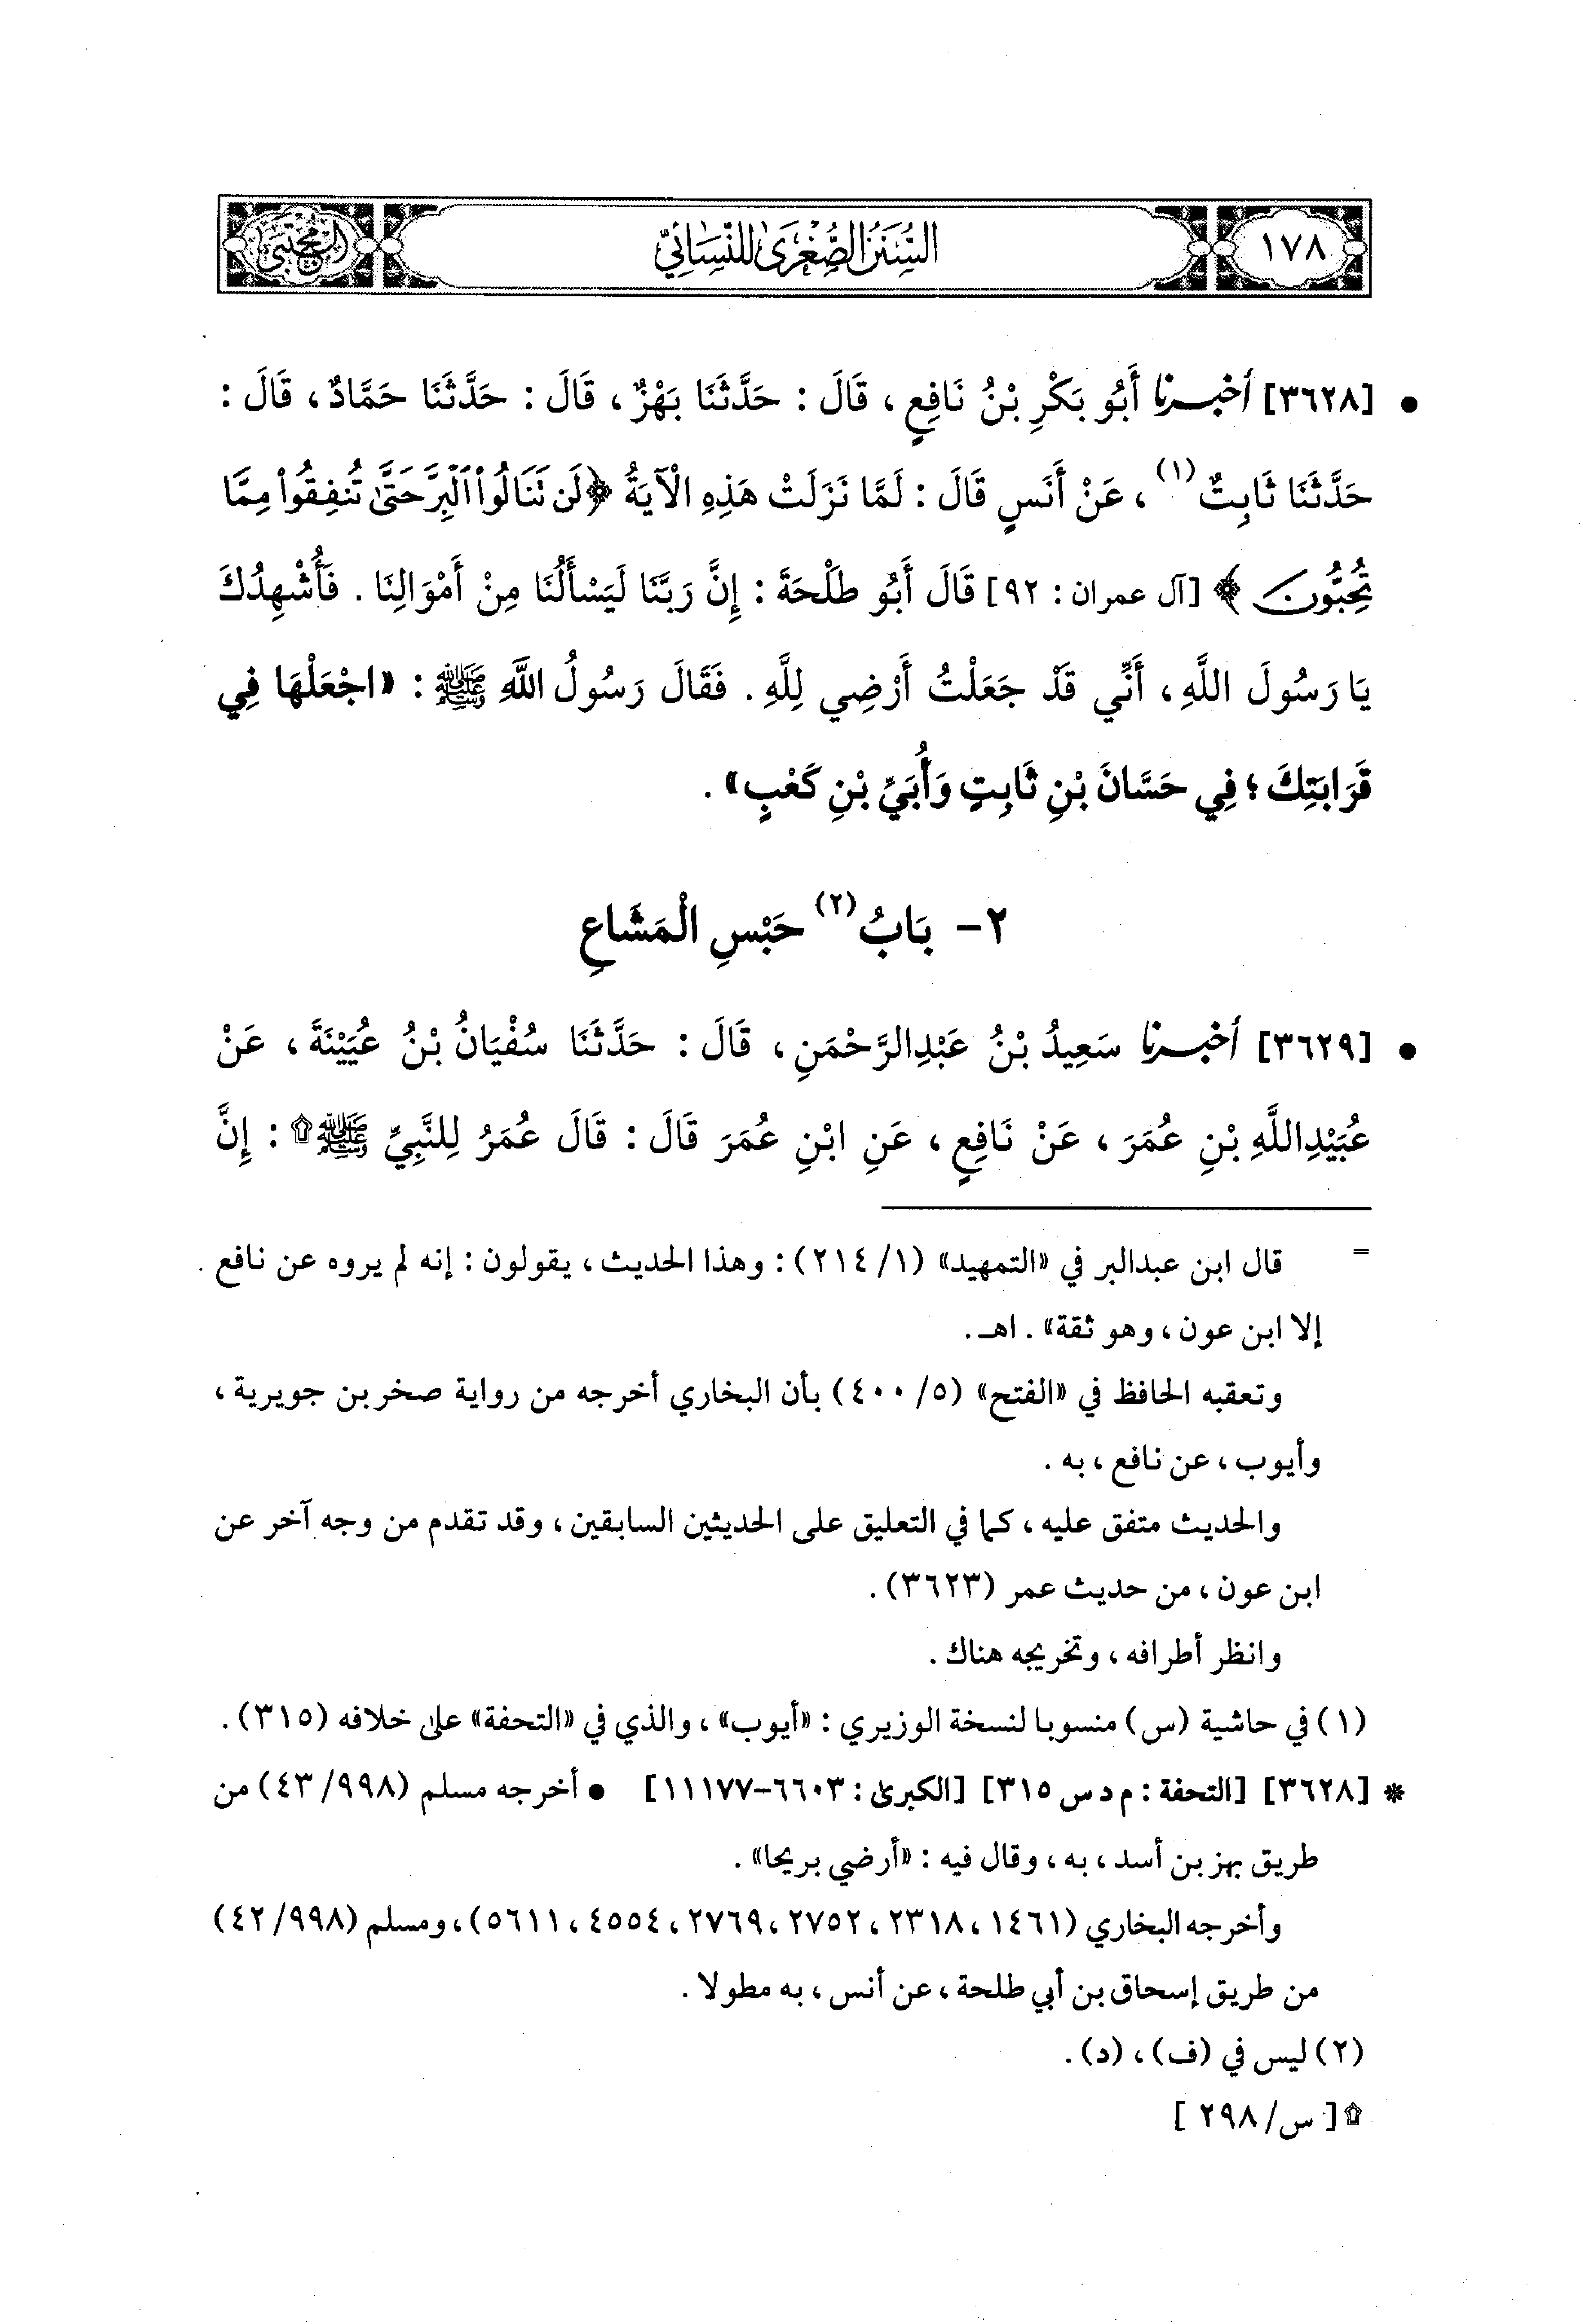 ١٧٨
السُّنَنُ الصُّغْرَىٰ لِلنَّسَائِيِّ
المجتبى
• [٣٦٢٨] أخبرنا أَبُو بَكْرِ بْنُ نَافِعٍ ، قَالَ : حَدَّثَنَا بَهْزٌ ، قَالَ : حَدَّثَنَا حَمَّادٌ ، قَالَ :
حَدَّثَنَا ثَابِتٌ (١) ، عَنْ أَنَسٍ قَالَ : لَمَّا نَزَلَتْ هَذِهِ الْآيَةُ ﴿لَن تَنَالُوا۟ ٱلْبِرَّ حَتَّىٰ تُنفِقُوا۟ مِمَّا
تُحِبُّونَ ﴾ [آل عمران : ٩٢] قَالَ أَبُو طَلْحَةَ : إِنَّ رَبَّنَا لَيَسْأَلُنَا مِنْ أَمْوَالِنَا . فَأُشْهِدُكَ
يَا رَسُولَ اللَّهِ ، أَنِّي قَدْ جَعَلْتُ أَرْضِي لِلَّهِ . فَقَالَ رَسُولُ اللَّهِ ﷺ : «اجْعَلْهَا فِي
قَرَابَتِكَ ؛ فِي حَسَّانَ بْنِ ثَابِتٍ وَأُبَيِّ بْنِ كَعْبٍ» .
٢- بَابُ (٢) حَبْسِ الْمَشَاعِ
• [٣٦٢٩] أخبرنا سَعِيدُ بْنُ عَبْدِالرَّحْمَنِ ، قَالَ : حَدَّثَنَا سُفْيَانُ بْنُ عُيَيْنَةَ ، عَنْ
عُبَيْدِاللَّهِ بْنِ عُمَرَ ، عَنْ نَافِعٍ ، عَنِ ابْنِ عُمَرَ قَالَ : قَالَ عُمَرُ لِلنَّبِيِّ ﷺ۩ : إِنَّ
= قال ابن عبدالبر في «التمهيد» (١/ ٢١٤) : وهذا الحديث ، يقولون : إنه لم يروه عن نافع
إلا ابن عون ، وهو ثقة» . اهـ .
وتعقبه الحافظ في «الفتح» (٥/ ٤٠٠) بأن البخاري أخرجه من رواية صخر بن جويرية ،
وأيوب ، عن نافع ، به .
والحديث متفق عليه ، كما في التعليق على الحديثين السابقين ، وقد تقدم من وجه آخر عن
ابن عون ، من حديث عمر (٣٦٢٣) .
وانظر أطرافه ، وتخريجه هناك .
(١) في حاشية (س) منسوبا لنسخة الوزيري : «أيوب» ، والذي في «التحفة» على خلافه (٣١٥) .
* [٣٦٢٨] [التحفة : م د س ٣١٥] [الكبرى : ٦٦٠٣-١١١٧٧] • أخرجه مسلم (٩٩٨/ ٤٣) من
طريق بهز بن أسد ، به ، وقال فيه : «أرضي بريحا» .
وأخرجه البخاري (١٤٦١ ، ٢٣١٨ ، ٢٧٥٢ ، ٢٧٦٩ ، ٤٥٥٤ ، ٥٦١١) ، ومسلم (٩٩٨/ ٤٢)
من طريق إسحاق بن أبي طلحة ، عن أنس ، به مطولا .
(٢) ليس في (ف) ، (د) .
۩ [ س/ ٢٩٨ ]